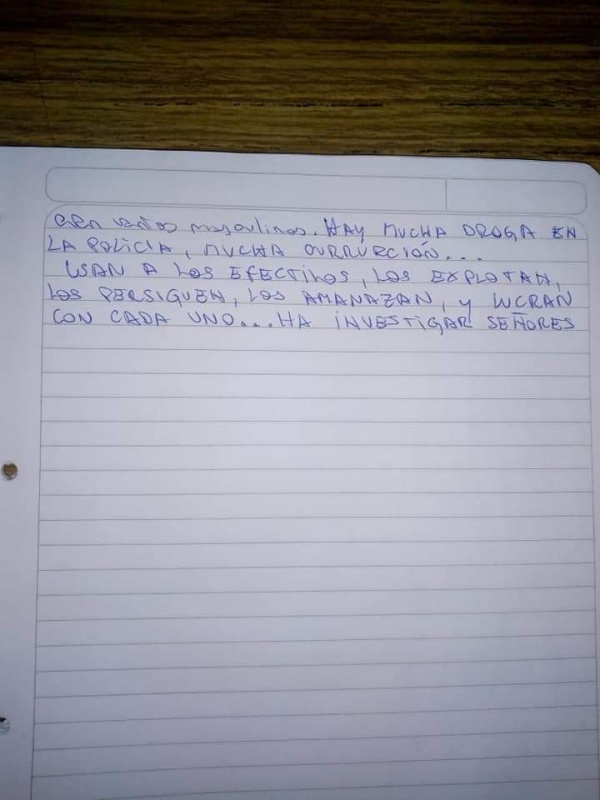 masculinos. HAY MUCHA DROGA EN
LA POLICIA, MUCHA CURRUPCIÓN...
USAN A LOS EFECTIVOS, LOS EXPLOTAN,
LOS PERSIGUEN, LOS AMANAZAN, y LUCRAN
CON CADA UNO... HA INVESTIGAR SEÑORES